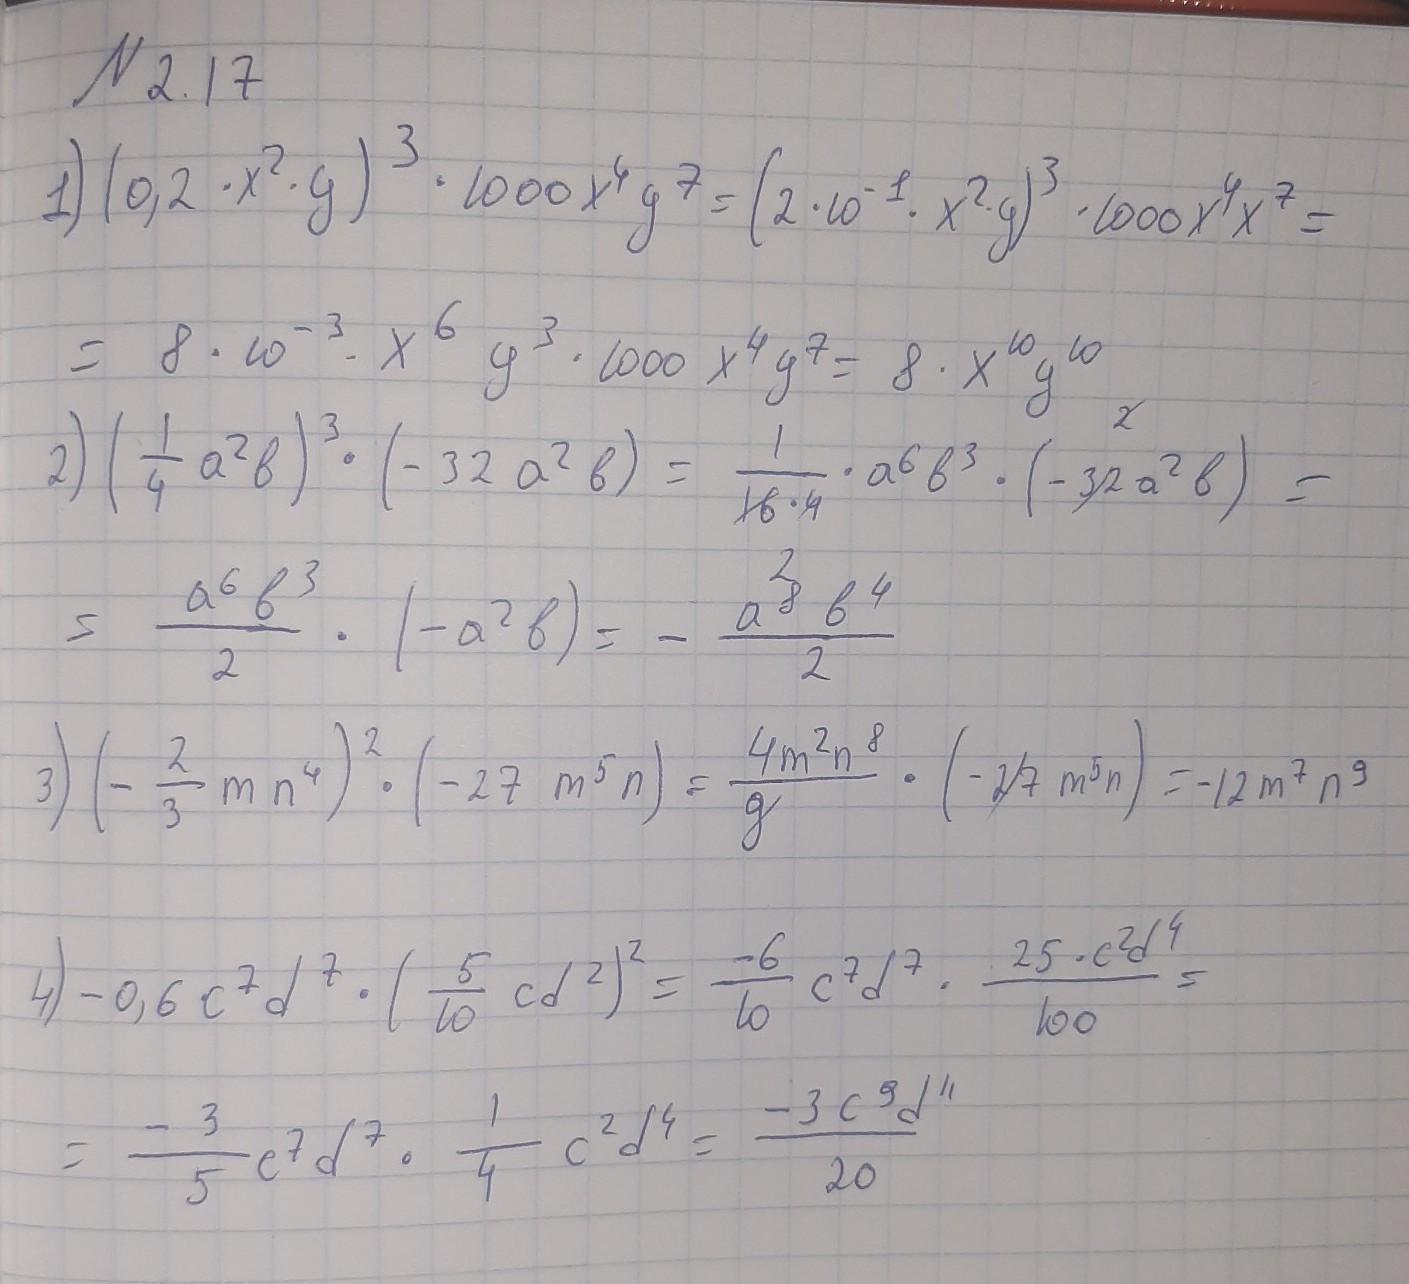 N 2.17
1) (0,2 · x² · y)³ · 1000x⁴y⁷ = (2 · 10⁻¹ · x² · y)³ · 1000x⁴x⁷ =
= 8 · 10⁻³ · x⁶ y³ · 1000 x⁴y⁷ = 8 · x¹⁰y¹⁰
2) (1/4 a²b)³ · (-32a²b) = 1/(16·4) · a⁶b³ · (-32a²b) =
= a⁶b³/2 · (-a²b) = - a⁸b⁴/2
3) (- 2/3 mn⁴)² · (-27 m⁵n) = 4m²n⁸/9 · (-27 m⁵n) = -12m⁷n⁹
4) -0,6c⁷d⁷ · (5/10 cd²)² = -6/10 c⁷d⁷ · 25·c²d⁴/100 =
= -3/5 c⁷d⁷ · 1/4 c²d⁴ = -3c⁹d¹¹/20